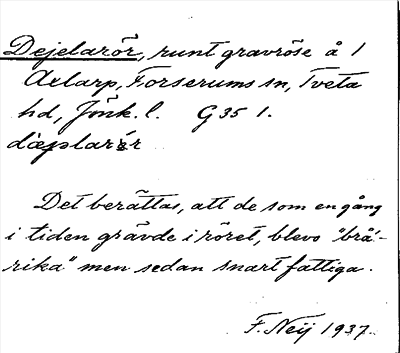 Dejelarör, runt gravröse å 1
Axlarp, Forserums sn, Tveta
hd, Jönk. l. G 35 1.
Det berättas, att de som en gång
i tiden grävde i röret, blevo "brå-
rika" men sedan snart fattiga.
F. Neij 1937.